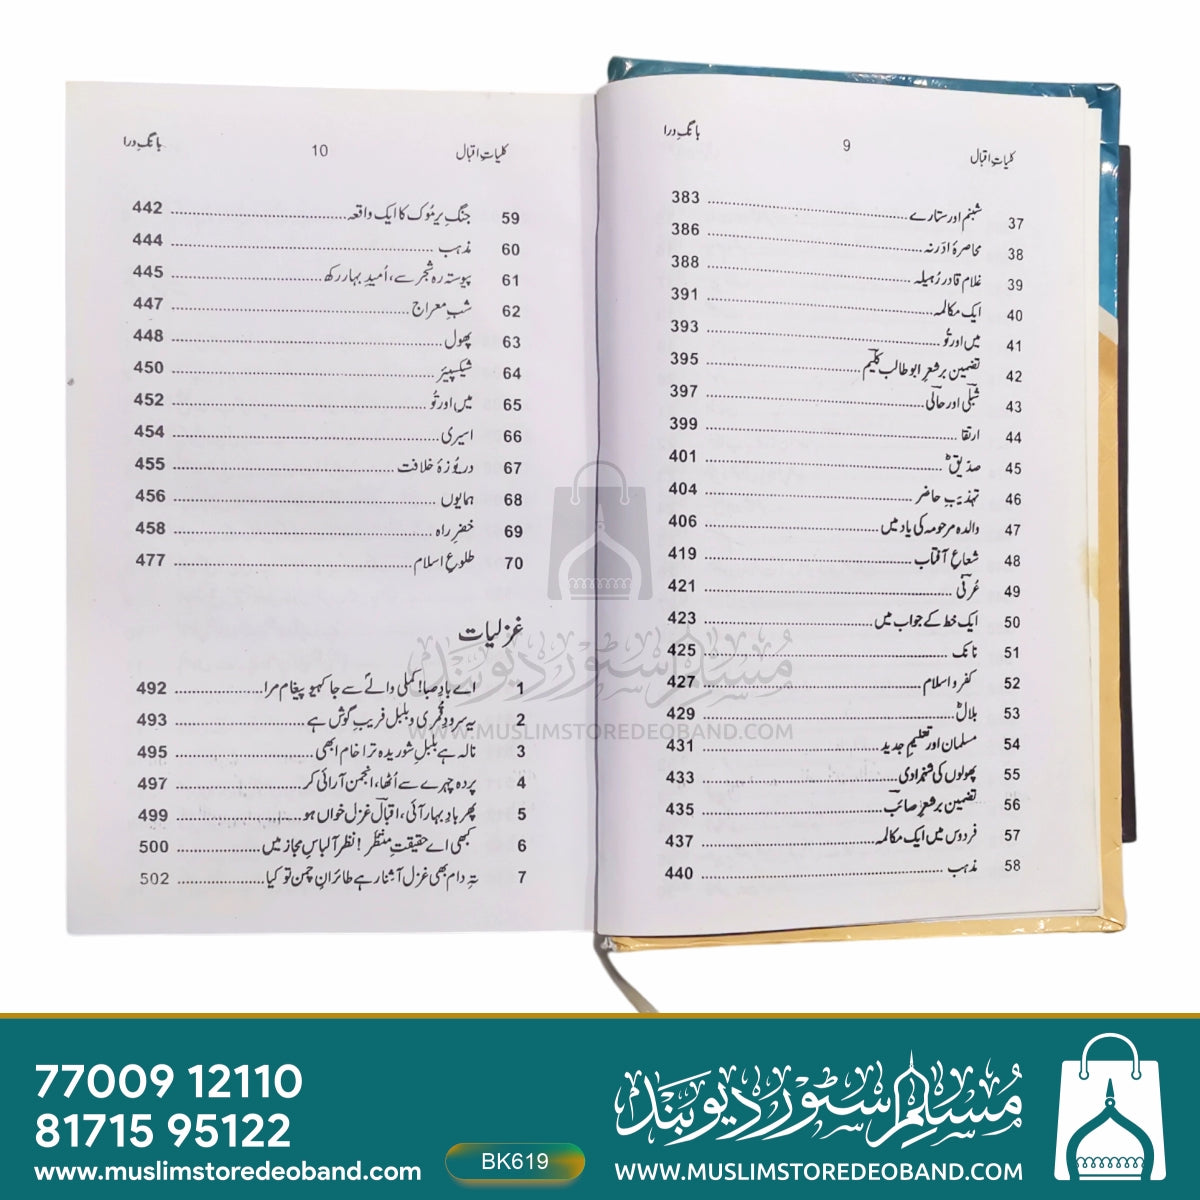 کلیاتِ اقبال 9 بانگِ درا
37 شبنم اور ستارے 383
38 محاصرۂ ادرنہ 386
39 غلام قادر رُہیلہ 388
40 ایک مکالمہ 391
41 میں اور تُو 393
42 تضمین بر شعرِ ابوطالب کلیمؔ 395
43 شبلیؔ اور حالیؔ 397
44 ارتقا 399
45 صدّیقؓ 401
46 تہذیبِ حاضر 404
47 والدہ مرحومہ کی یاد میں 406
48 شعاعِ آفتاب 419
49 عُرفیؔ 421
50 ایک خط کے جواب میں 423
51 نانک 425
52 کفر و اسلام 427
53 بلالؓ 429
54 مسلمان اور تعلیمِ جدید 431
55 پھولوں کی شہزادی 433
56 تضمین بر شعرِ صائبؔ 435
57 فردوس میں ایک مکالمہ 437
58 مذہب 440
کلیاتِ اقبال 10 بانگِ درا
59 جنگِ یرمُوک کا ایک واقعہ 442
60 مذہب 444
61 پیوستہ رہ شجر سے، اُمیدِ بہار رکھ 445
62 شبِ معراج 447
63 پھول 448
64 شیکسپیئر 450
65 میں اور تُو 452
66 اسیری 454
67 دریُوزۂ خلافت 455
68 ہمایوں 456
69 خضرِ راہ 458
70 طلوعِ اسلام 477
غزلیات
1 اے بادِ صبا! کملی والےؐ سے جا کہیو پیغام مرا 492
2 یہ سرودِ قُمری و بلبل فریبِ گوش ہے 493
3 نالہ ہے بلبلِ شوریدہ ترا خام ابھی 495
4 پردہ چہرے سے اُٹھا، انجمن آرائی کر 497
5 پھر بادِ بہار آئی، اقبالؔ غزل خواں ہو 499
6 کبھی اے حقیقتِ منتظَر! نظر آ لباسِ مجاز میں 500
7 تہِ دام بھی غزل آشنا رہے طائرانِ چمن تو کیا 502
مُسلم سٹور دیوبند
WWW.MUSLIMSTOREDEOBAND.COM
77009 12110
81715 95122
www.muslimstoredeoband.com
BK619
مُسلم سٹور دیوبند
WWW.MUSLIMSTOREDEOBAND.COM